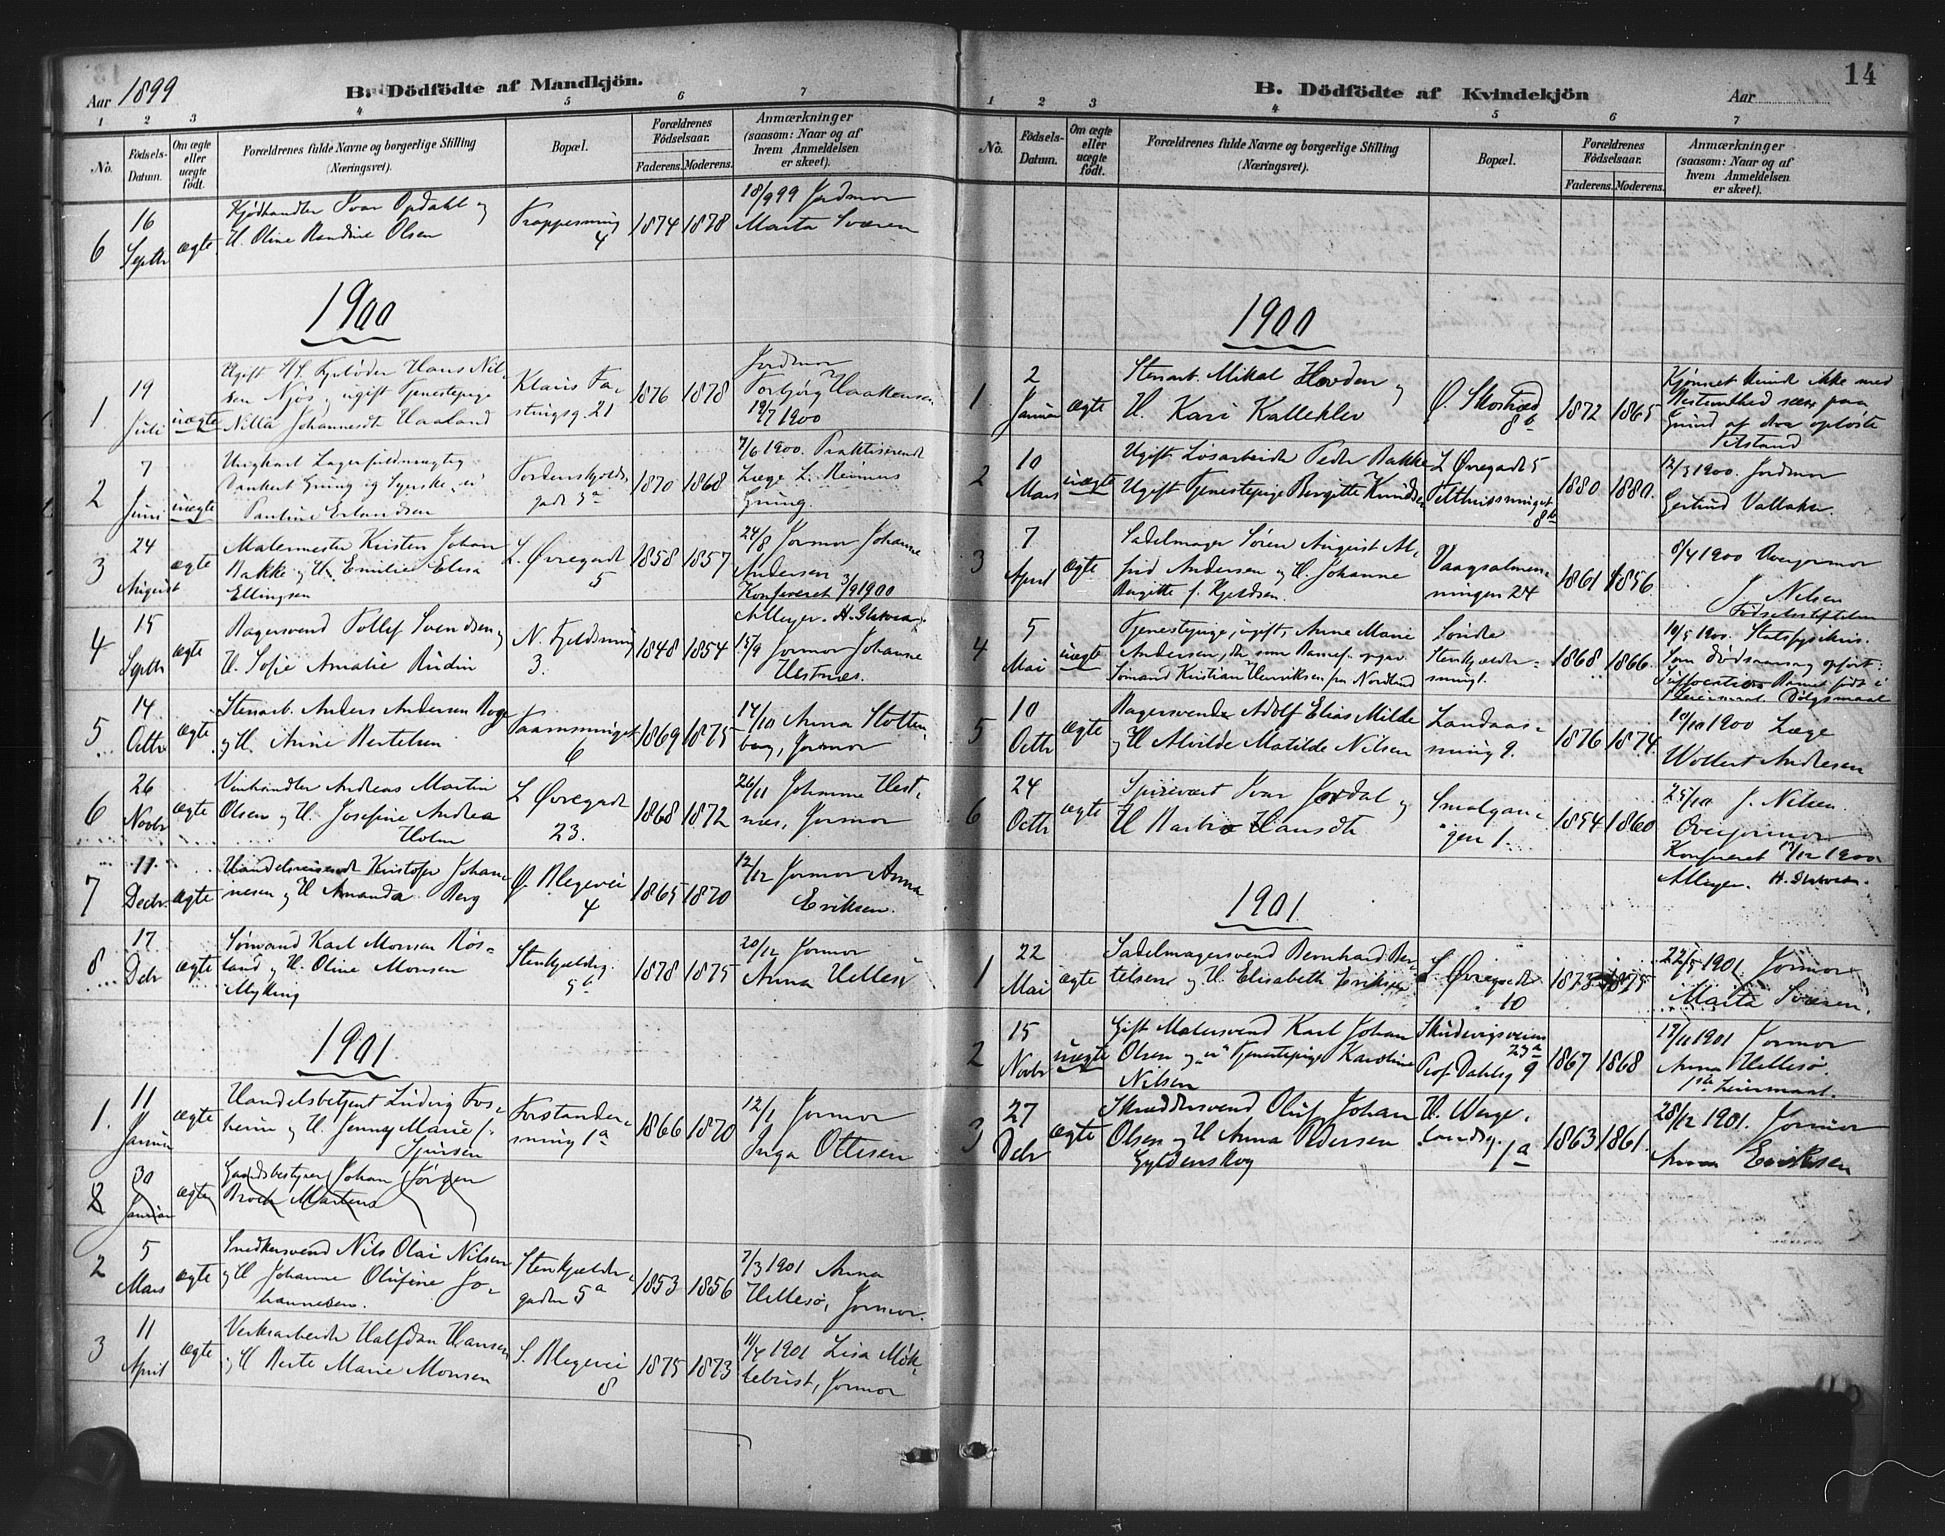 Aar 1899
B. Dödfödte af Mandkjön.
1 2 3 4 5 6 7
No.
Födsels-Datum.
Om ægte eller uægte födt.
Forældrenes fulde Navne og borgerlige Stilling
(Næringsvei).
Bopæl.
Forældrenes Födselsaar.
Faderens. Moderens.
Anmærkninger
(saasom: Naar og af
hvem Anmeldelsen
er skeet).
6 16 Septbr ægte
Kjødhandler Ivar Opdahl og
H. Oline Randine Olsen
4
1874 1878
18/9 99 Jordmor
Marta Sværen
1900
1 19 Juli uægte
Ugift Kjeløder Hans Nil-
sen Njøs og ugift Tjenestepige
Nilla Johannesdt Haaland
Klaus Fa-
stingsg. 21
1876 1878
Jordmor
Torbjørg Haakensen
19/7 1900
2 7 Juni uægte
Ungkarl Lagerfuldmægtig
Dankert Grung og Syerske,
Pauline Erlandsen
Tordenskjolds
gade 3a
1870 1868
7/6 1900. Praktiserende
Læge L. Reimers
Grung.
3 24 August ægte
Malermester Kristen Johan
Bakke og H. Emilie Elisa
Ellingsen
L Øvregade
5
1858 1857
24/8 Jormor Johanne
Andersen
Konfereret 3/9 1900
AMeyer.
4 15 Septbr ægte
Bagersvend Tollef Svendsen og
H. Sofie Amalie Rudin
N. Fjeldsmug
3.
1848 1854
15/9 Jormor Johanne
Hestnæs.
5 14 Octbr ægte
Stenarb. Anders Andersen
og H. Anne Bertelsen
6
1869 1875
14/10 Anna Stolten-
berg, Jormor
6 26 Novbr ægte
Vinhandler Andreas Martin
Olsen og H. Josefine Andrea
Holm
L Øvregade
23.
1868 1872
26/11 Johanne Hest-
næs, Jormor
7 11 Decbr. ægte
Handelsreisende Kristofer Johan-
nesen og H Amanda Berg
Ø. Blegevei
4
1865 1870
12/12 Jormor Anna
Eriksen.
8 17 Debr ægte
Sømand Karl Monsen Røs-
land og H. Oline Monsen
Mykling
Stenkjeldg.
1878 1875
20/12 Jormor
Anna Hellesø
1901
1. 11 Januar ægte
Handelsbetjent Ludvig Fos-
heim og H. Jenney Marie f.
Sjursen
Forstander-
smug 1a
1866 1870
12/1 Jormor
Inga Ottesen
2 30 Januar ægte
Johan Jørgen
Broch Martens
2 5 Mars ægte
Snedkersvend Nils Olai Nilsen
og H Johanne Olufine Jo-
hannesen.
Stenkjelder-
gaden 5a
1853 1856
7/3 1901 Anna
Hellesø, Jormor.
3 11 April ægte
Verksarbeider Halfdan Hansen
og H Berte Marie Monsen
S. Blegevei
8
1875 1873
11/4 1901 Lisa Møk-
lebust, Jormor
14
B. Dödfödte af Kvindekjön
Aar
1 2 3 4 5 6 7
No.
Födsels-Datum.
Om ægte eller uægte födt.
Forældrenes fulde Navne og borgerlige Stilling
(Næringsvei).
Bopæl.
Forældrenes Födselsaar.
Faderens. Moderens.
Anmærkninger
(saasom: Naar og af
hvem Anmeldelsen
er skeet).
1900
1 2 Januar ægte
Stenarb. Mikal Hovden og
H. Kari Kalleklev
Ø. Skostræd
8b
1872 1865
Kjønnet kunde ikke med
Bestemthed sees paa
Grund af den opløste
Tilstand
2 10 Mars uægte
Ugift Løsarbeider Peder Bakke
Ugift Tjenestepige Bergitte Knudsen
L Øvregade 5
8b
1880 1880.
12/3 1900. Jordmor
Gertrud Vallaker.
3 7 April ægte
Sadelmager Søren August Al-
fred Andersen og H. Johanne
Birgitte f. Kjeldsen.
Vaagsalmen-
ningen 24
1861 1856
8/4 1900 Overjormor
J Nilsen
Fødselsstiftelsen
4 5 Mai uægte
Tjenestepige, ugift, Anne Marie
Andersen, der som Barnef. opgav
Sømand Kristian Henriksen fra Nordland
Søndre
Stenkjelder-
smug 1.
1868 1866.
10/5 1900. Statsfysikus.
Som Dødsaarsag opført:
Suffocatio Barnet født i
Dølgsmaal
5 10 Octbr ægte
Bagersvend Adolf Elias Milde
og H Alvilde Matilde Nilsen
Landaas-
smug 9.
1876 1874
10/10 1900 Læge
Wollert Andresen
6 24 Octbr ægte
Ivar Jordal og
H Barbro Hansdtr
Smalgan-
gen 1.
1854 1860
25/10 J. Nilsen
Overjormor
Konfereret 17/12 1900
AMeyer.
1901
1 22 Mai ægte
Sadelmagersvend Bernhard Ber-
telsen og H. Elisabeth Eriksen
L Øvregade
10
1873 1875
22/5 1901. Jormor
Marta Sværen.
2 15 Novbr uægte
Gift Malersvend Karl Johan
Olsen og u Tjenestepige Karoline
Nilsen
Skudevigsveien
23a
Prof. Dahlsg 9
1867 1868
17/11 1901 Jormor
Anna Hellesø.
1ste Leiermaal.
3 27 Debr ægte
Skræddersvend Oluf Johan
Olsen og H Anna Pedersen
Gyldenskog
H. Werge-
landsg. 1a
1863 1861.
28/12 1901. Jormor
Anna Eriksen